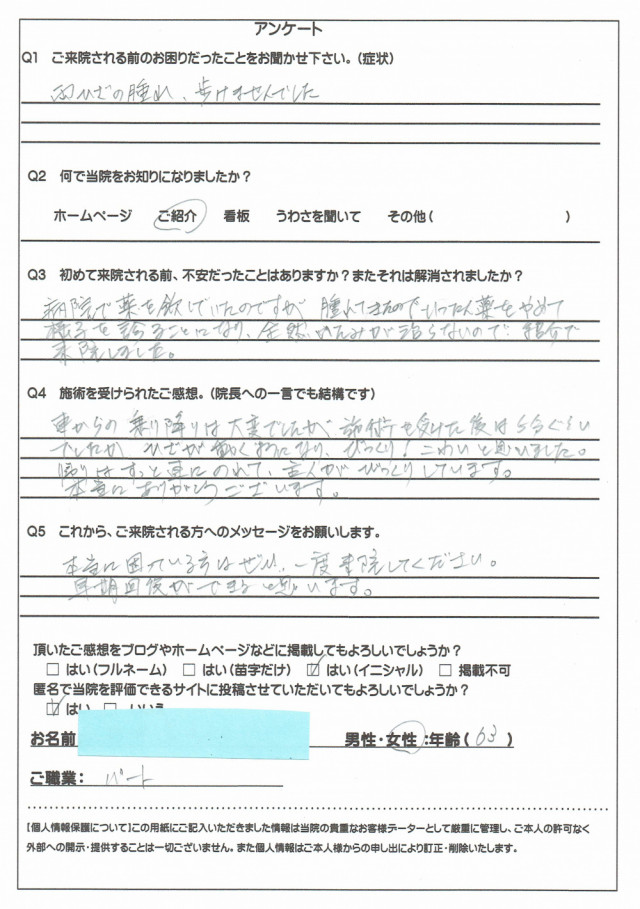 アンケート
Q1 ご来院される前のお困りだったことをお聞かせ下さい。(症状)
両ひざの腫れ、歩けませんでした
Q2 何で当院をお知りになりましたか?
ホームページ ご紹介 看板 うわさを聞いて その他( )
Q3 初めて来院される前、不安だったことはありますか?またそれは解消されましたか?
病院で薬を飲んでいたのですが 腫れてきたのでいったん薬をやめて
様子を診ることになり、全然 いたみが治らないので 紹介で
来院しました。
Q4 施術を受けられたご感想。(院長への一言でも結構です)
車からの乗り降りは大変でしたが 施術を受けた後は 5分ぐらい
でしたが ひざが動くようになり、びっくり!こわいと思いました。
帰りはすっと車にのれて、主人がびっくりしています。
本当にありがとうございます。
Q5 これから、ご来院される方へのメッセージをお願いします。
本当に困っている方はぜひ、一度来院してください。
早期回復ができると思います。
頂いたご感想をブログやホームページなどに掲載してもよろしいでしょうか?
□ はい(フルネーム) □ はい(苗字だけ) ☑ はい(イニシャル) □ 掲載不可
匿名で当院を評価できるサイトに投稿させていただいてもよろしいでしょうか?
☑ はい □ いいえ
お名前 男性・女性:年齢(63)
ご職業: パート
【個人情報保護について】この用紙にご記入いただきました情報は当院の貴重なお客様データーとして厳重に管理し、ご本人の許可なく
外部への開示・提供することは一切ございません。また個人情報はご本人様からの申し出により訂正・削除いたします。